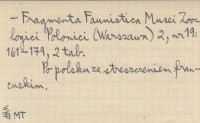 — Fragmenta Faunistica Musei Zoo-
logici Polonici (Warszawa) 2, nr 19:
161–179, 2 tab.
Po polsku ze streszczeniem fran-
cuskim.
MT